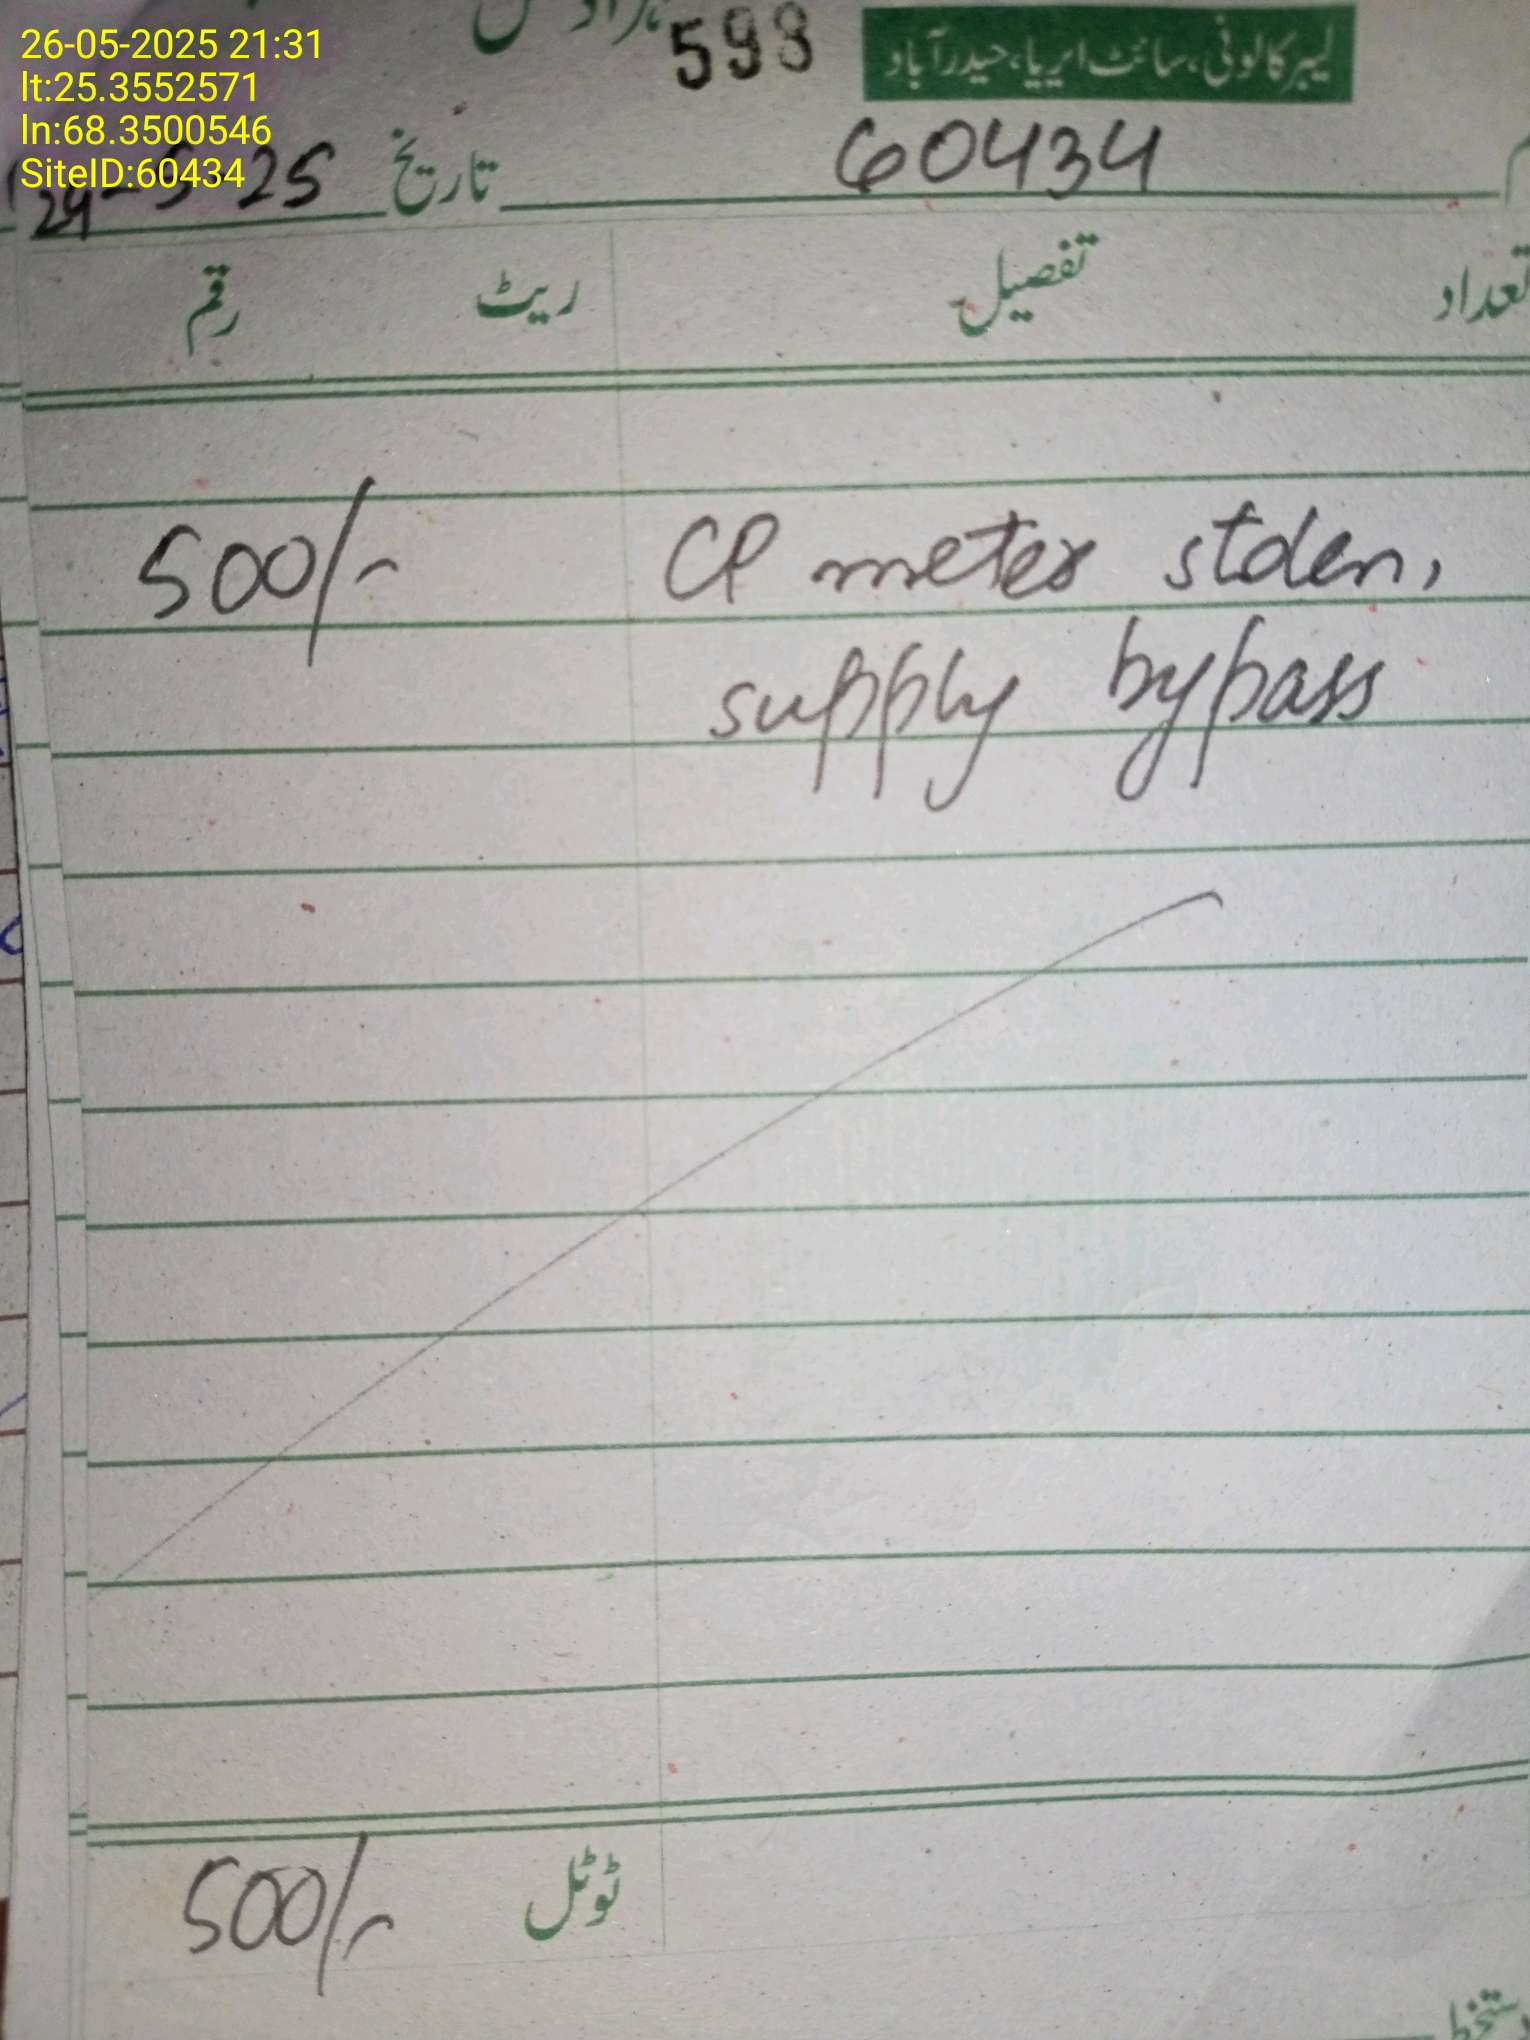 26-05-2025 21:31
lt:25.3552571
ln:68.3500546
SiteID:60434
598
لیبر کالونی، سائٹ ایریا، حیدرآباد
60434
تاریخ 24-5-25
تعداد تفصیل ریٹ رقم
CP meter stolen, 500/-
supply bypass
ٹوٹل 500/-